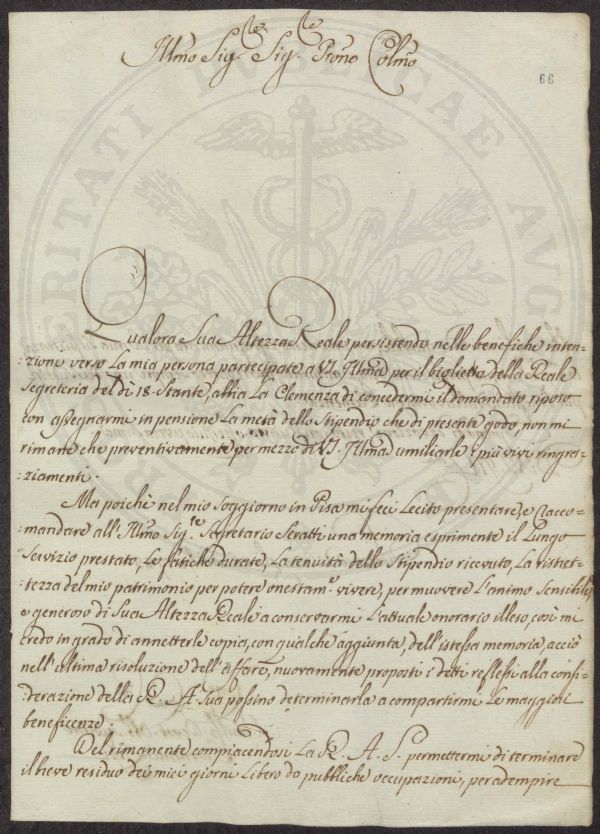 Illmo Sig.re Sig.re Prone Colmo
66
Qualora Sua Altezza Reale persistendo nelle benefiche inten-
:zioni verso La mia persona partecipate a VS. Illma per il biglietto della Reale
Segreteria del dì 18. Stante, abbia La Clemenza di concedermi il domandato riposo
con assegnarmi in pensione La metà dello Stipendio che di presente godo, non mi
rimane che preventivamente per mezzo di VS. Illma umiliarle i più vivi ringra-
:ziamenti.
Ma poichè nel mio Soggiorno in Pisa mi feci Lecito presentare, e racco-
mandare all'Illmo Sig.re Segretario Seratti una memoria esprimente il Lungo
Servizio prestato, Le fatiche durate, La tenuità dello Stipendio ricevuto, La ristret-
:tezza del mio patrimonio per potere onestam.e vivere, per muovere L'animo Sensibile,
e generoso di Sua Altezza Reale a conservarmi L'attuale onorario illeso, così mi
credo in grado di annetterle copia, con qualche aggiunta, dell'istessa memoria, acciò
nell'ultima risoluzione dell'affare, nuovamente proposti i detti reflessi alla consi-
:derazione della R. A. Sua possino determinarla a compartirmi Le maggiori
beneficenze.
Del rimanente compiacendosi La R. A. S. permettermi di terminare
il breve residuo dei miei giorni Libero da pubbliche occupazioni, per adempire
RITATI PUBLICAE AUG